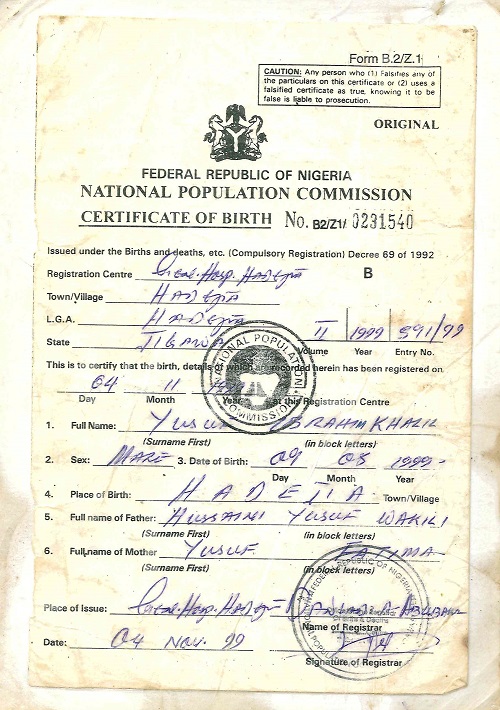 Form B.2/Z.1
CAUTION: Any person who (1) Falsifies any of
the particulars on this certificate or (2) uses a
falsified certificate as true, knowing it to be
false is liable to prosecution.
ORIGINAL
FEDERAL REPUBLIC OF NIGERIA
NATIONAL POPULATION COMMISSION
CERTIFICATE OF BIRTH No. B2/Z1/ 0231540
Issued under the Births and deaths, etc. (Compulsory Registration) Decree 69 of 1992
Registration Centre Hosp. Hadejia B
Town/Village HADEJIA
L.G.A. HADEJIA II 1999 591/99
State JIGAWA Volume Year Entry No.
This is to certify that the birth, details of which are recorded herein has been registered on
04 11
Day Month Year at this Registration Centre
1. Full Name: YUSUF IBRAHIM KHALIL
(Surname First) (in block letters)
2. Sex: MALE 3. Date of Birth: 09 08 1999
Day Month Year
4. Place of Birth: HADEJIA Town/Village
5. Full name of Father: HUSSAINI YUSUF WAKILI
(Surname First) (in block letters)
6. Full name of Mother YUSUF FATIMA
(Surname First) (in block letters)
Place of Issue: Hosp. Hadejia A. ABUBAKAR
Name of Registrar
Date: 04 Nov. 99
Signature of Registrar
NATIONAL POPULATION COMMISSION
FEDERAL REPUBLIC OF NIGERIA